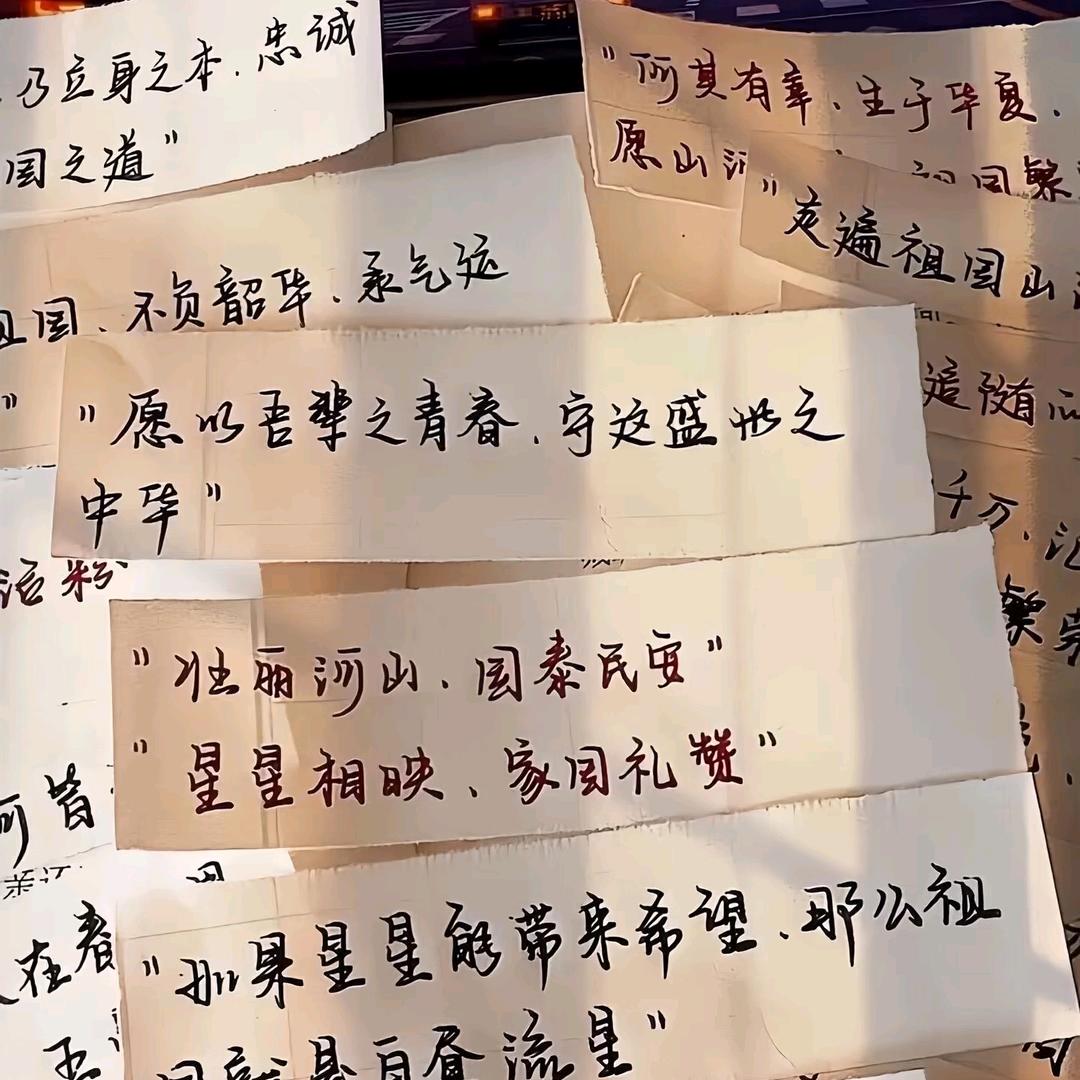 乃立身之本，忠诚
国之道"
"何其有幸，生于华夏，
愿山河
"走遍祖国山
祖国，不负韶华，承气运
"
"愿以吾辈之青春，守这盛世之
中华"
追随
千万，汇
繁荣
话粉
"壮丽河山，国泰民安"
"星星相映、家国礼赞"
河皆
在春
"如果星星能带来希望，那么祖
国就是百昼流星"